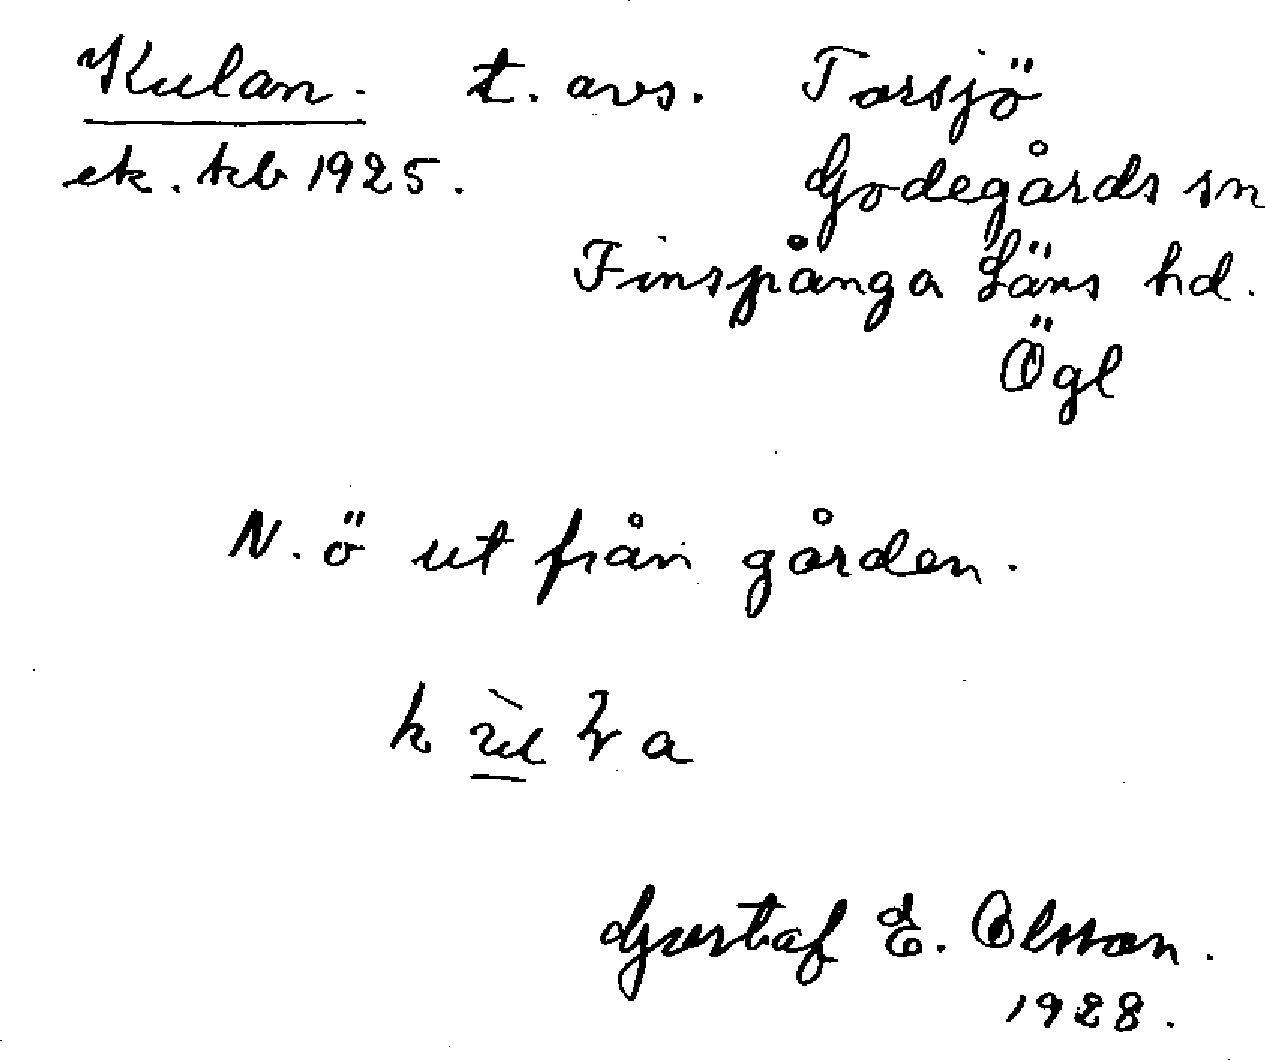 Kulan. t. avs. Torsjö
ek. kb 1925. Godegårds sn
Finspånga Läns hd.
Ögl
N. ö ut från gården.
Gustaf E. Olsson.
1928.